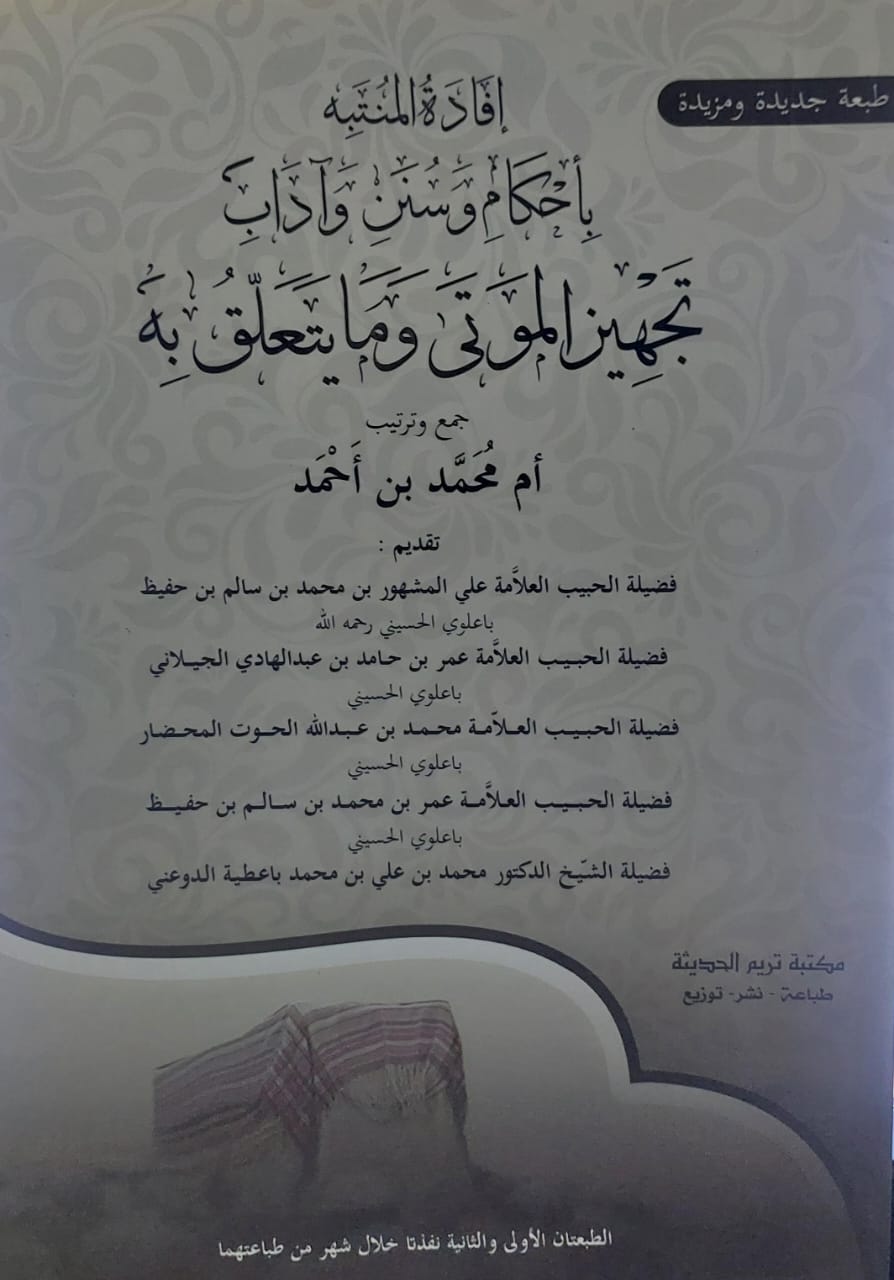 طبعة جديدة ومزيدة
إفَادَةُ المُنْتَبِه
بِأَحْكَامِ وَسُنَنِ وَآدَابِ
تَجْهِيزِ المَوْتَى وَمَا يَتَعَلَّقُ بِهِ
جمع وترتيب
أم مُحَمَّد بن أَحْمَد
تقديم :
فضيلة الحبيب العلاَّمة علي المشهور بن محمد بن سالم بن حفيظ
باعلوي الحسيني رحمه الله
فضيلة الحبيب العلاَّمة عمر بن حامد بن عبدالهادي الجيلاني
باعلوي الحسيني
فضيلة الحبيب العلاّمة محمد بن عبدالله الحوت المحضار
باعلوي الحسيني
فضيلة الحبيب العلاَّمة عمر بن محمد بن سالم بن حفيظ
باعلوي الحسيني
فضيلة الشّيخ الدكتور محمد بن علي بن محمد باعطية الدوعني
مكتبة تريم الحديثة
طباعة - نشر- توزيع
الطبعتان الأولى والثانية نفذتا خلال شهر من طباعتهما